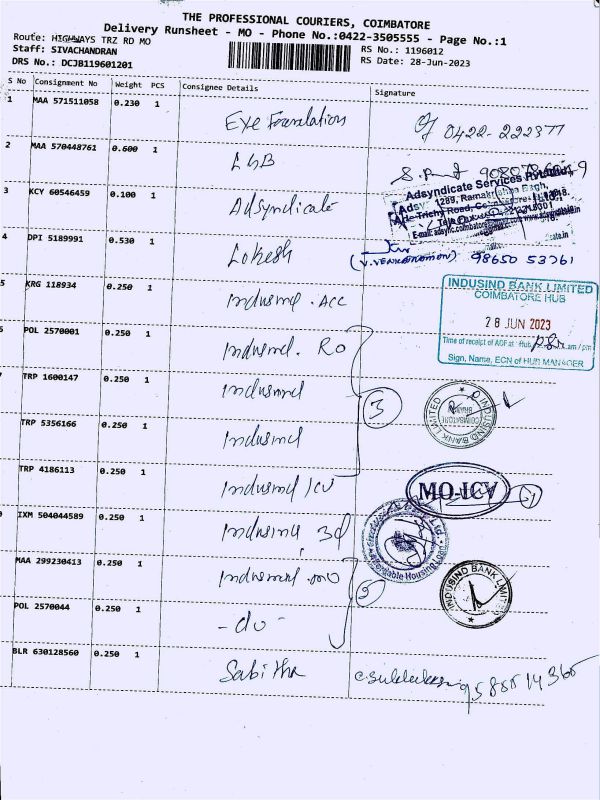 THE PROFESSIONAL COURIERS, COIMBATORE
Delivery Runsheet - MO - Phone No.:0422-3505555 - Page No.:1
Route: HIGHWAYS TRZ RD MO
RS No.: 1196012
Staff: SIVACHANDRAN
RS Date: 28-Jun-2023
DRS No.: DCJB119601201
S No Consignment No Weight PCS Consignee Details Signature
1 MAA 571511058 0.230 1 Eye Foundation 0422-222377
2 MAA 570448761 0.600 1 LGB
3 KCY 60546459 0.100 1 Adsyndicate
Adsyndicate Services Private
1289, Ramakrishna Bagh,
Trichy Road,
4 DPI 5189991 0.530 1 Lokesh
98650 53761
5 KRG 118934 0.250 1 Indusind . ACC
INDUSIND BANK LIMITED
COIMBATORE HUB
28 JUN 2023
Time of receipt of AOF at Hub am / pm
Sign, Name, ECN of HUB MANAGER
6 POL 2570001 0.250 1 Indusind . RO
TRP 1600147 0.250 1 Indusind
3
INDUSIND BANK LIMITED
COIMBATORE
TRP 5356166 0.250 1 Indusind
TRP 4186113 0.250 1 Indusind ICV
MO-ICV
IXM 504044589 0.250 1 Indusind 3d
Affordable Housing Loan
MAA 299230413 0.250 1 Indusind . MO
INDUSIND BANK LIMITED
POL 2570044 0.250 1 - do -
BLR 630128560 0.250 1 Sabitha